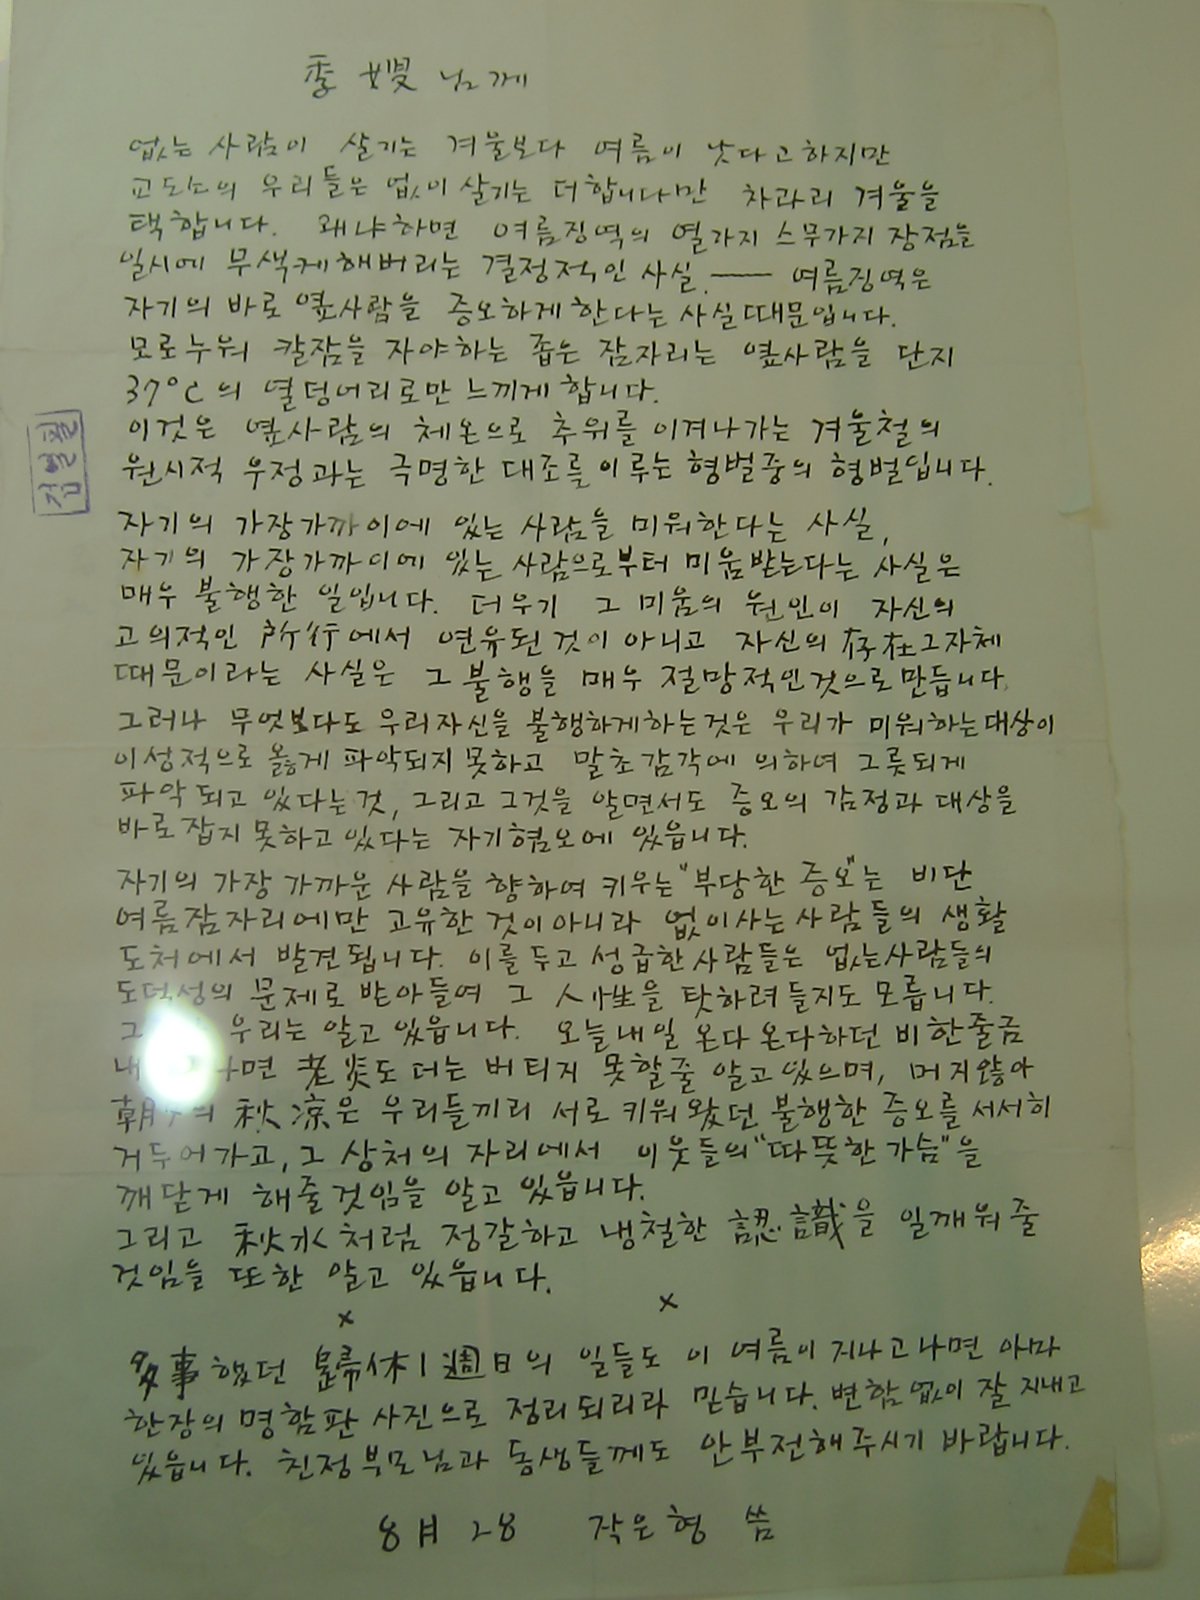 季嫂 님께
없는 사람이 살기는 겨울보다 여름이 낫다고하지만
교도소의 우리들은 없이살기는 더합니다만 차라리 겨울을
택합니다. 왜냐하면 여름징역의 열가지 스무가지 장점을
일시에 무색케해버리는 결정적인 사실. —— 여름징역은
자기의 바로 옆사람을 증오하게한다는 사실때문입니다.
모로누워 칼잠을 자야하는 좁은 잠자리는 옆사람을 단지
37°C의 열덩어리로만 느끼게합니다.
이것은 옆사람의 체온으로 추위를 이겨나가는 겨울철의
원시적 우정과는 극명한 대조를이루는 형벌중의 형벌입니다.
검열필
자기의 가장가까이에 있는 사람을 미워한다는 사실,
자기의 가장가까이에 있는 사람으로부터 미움받는다는 사실은
매우 불행한 일입니다. 더우기 그 미움의 원인이 자신의
고의적인 所行에서 연유된것이 아니고 자신의 存在그자체
때문이라는 사실은 그 불행을 매우 절망적인것으로만듭니다.
그러나 무엇보다도 우리자신을 불행하게하는것은 우리가 미워하는대상이
이성적으로 옳게 파악되지못하고 말초감각에 의하여 그릇되게
파악되고 있다는것, 그리고 그것을 알면서도 증오의 감정과 대상을
바로잡지못하고있다는 자기혐오에 있읍니다.
자기의 가장 가까운 사람을 향하여 키우는 "부당한 증오"는 비단
여름잠자리에만 고유한 것이아니라 없이사는사람들의 생활
도처에서 발견됩니다. 이를두고 성급한사람들은 없는사람들의
도덕성의 문제로 받아들여 그 人性을 탓하려들지도 모릅니다.
그 우리는 알고 있읍니다. 오늘내일 온다온다하던 비한줄금
내 나면 老炎도 더는 버티지 못할줄 알고있으며, 머지않아
朝 의 秋凉은 우리들끼리 서로키워왔던 불행한 증오를 서서히
거두어가고, 그 상처의 자리에서 이웃들의 "따뜻한가슴"을
깨닫게 해줄것임을 알고 있읍니다.
그리고 秋水처럼 정갈하고 냉철한 認識을 일깨워줄
것임을 또한 알고 있읍니다.
× ×
多事했던 歸休1週日의 일들도 이 여름이지나고나면 아마
한장의 명함판 사진으로 정리되리라 믿습니다. 변함없이 잘지내고
있읍니다. 친정부모님과 동생들께도 안부전해주시기 바랍니다.
8月 28 작은형 씀